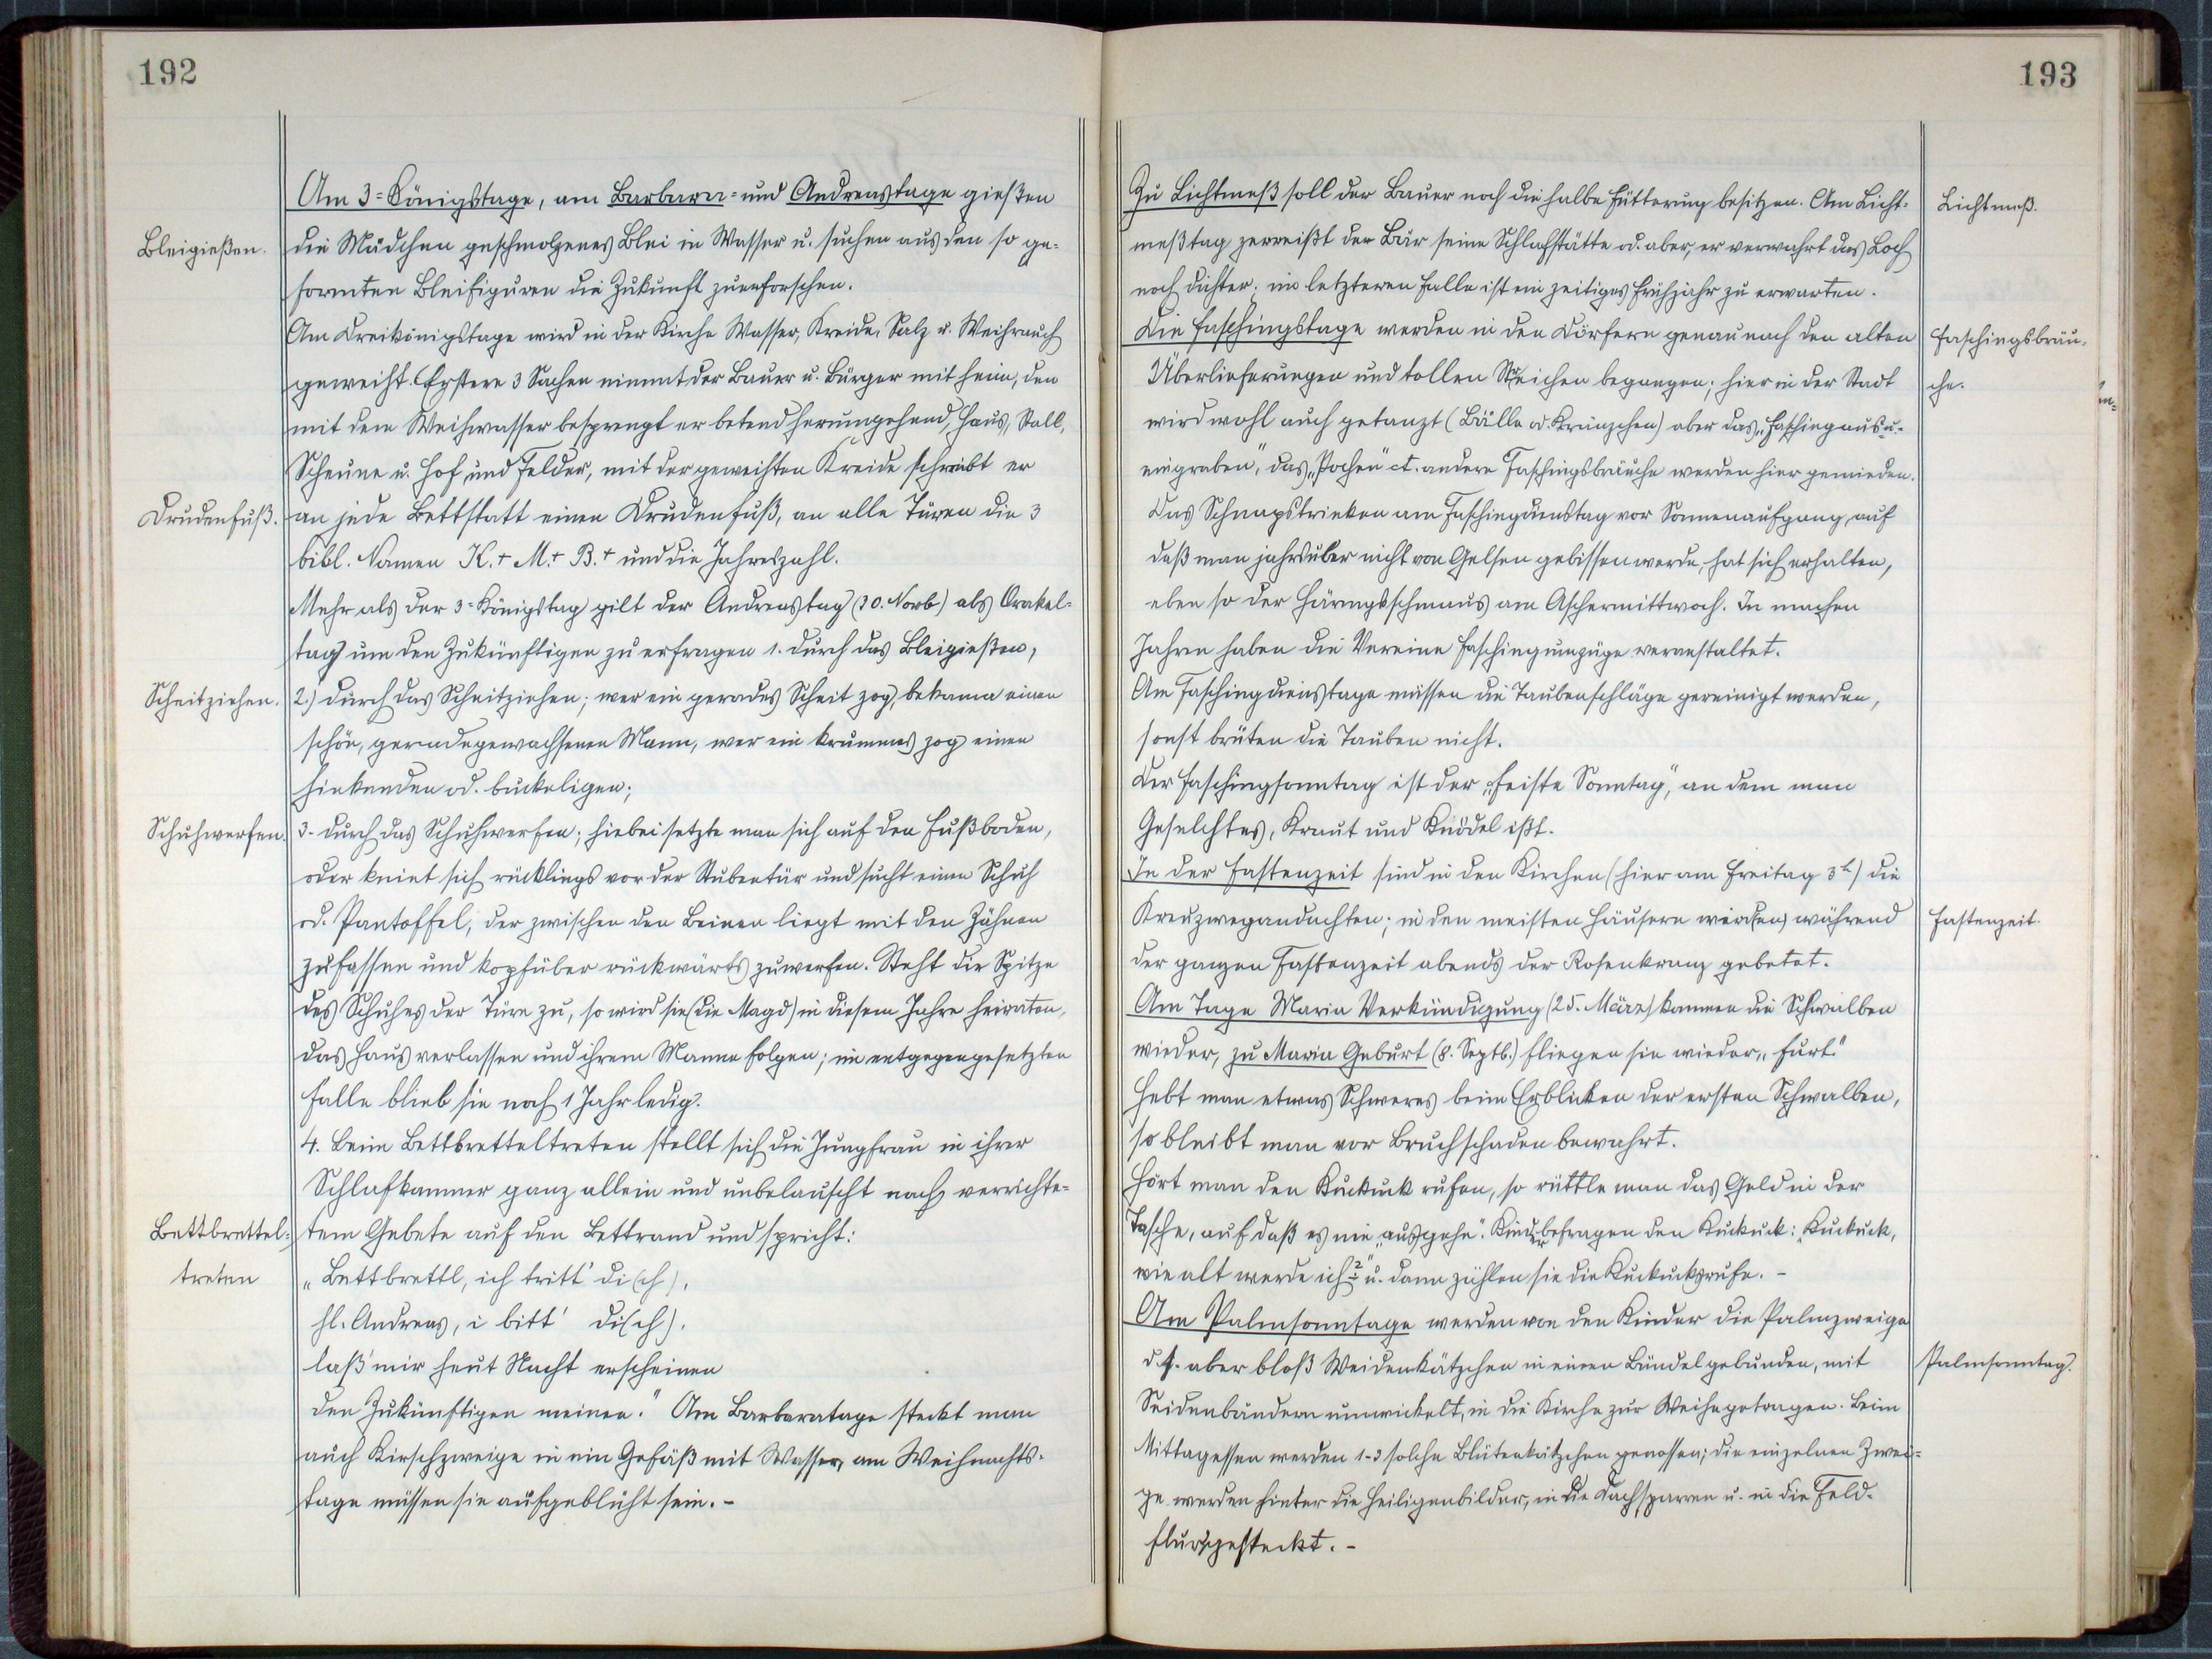 192
Am 3=Königstage, am Barbara= und Andreastage gießen
Bleigießen.
die Mädchen geschmolzenes Blei in Wasser u. suchen aus den so ge-
formten Bleifiguren die Zukunft zuerforschen.
Am Dreikönigstage wird in der Kirche Wasser, Kreide, Salz u. Weihrauch
geweiht. Erstere 3 Sachen nimmt der Bauer u. Bürger mit heim, den
mit dem Weihwasser besprengt er betend herumgehend, Haus, Stall,
Scheune u. Hof und Felder, mit der geweihten Kreide schreibt er
Drudenfuß.
an jede Bettstatt einen Drudenfuß, an alle Türen die 3
bibl. Namen K.+ M.+ B.+ und die Jahreszahl.
Mehr als der 3=Königstag gilt der Andreastag (30. Novb.) als Orakel=
tag um den Zukünftigen zu erfragen 1. durch das Bleigießen,
Scheitziehen.
2.) durch das Scheitziehen; wer ein gerades Scheit zog, bekam einen
schön, geradegewachsenen Mann, wer ein krummes zog einen
hinkenden od. buckeligen;
Schuhwerfen.
3. durch das Schuhwerfen; hiebei setzte man sich auf den Fußboden,
oder kniet sich rücklings vor der Stubentür und sucht einen Schuh
od. Pantoffel, der zwischen den Beinen liegt mit den Zähnen
zufassen und kopfüber rückwärts zuwerfen. Steht die Spitze
des Schuhes der Türe zu, so wird sie (die Magd) in diesem Jahre heiraten,
das Haus verlassen und ihrem Manne folgen; im entgegengesetzten
Falle blieb sie noch 1 Jahr ledig.
4. Beim Bettbretteltreten stellt sich die Jungfrau in ihrer
Schlafkammer ganz allein und unbelauscht nach verrichte=
Bettbrettel=
tem Gebete auf den Bettrand und spricht:
treten
„Bettbrettl, ich tritt' di(ch),
hl. Andreas, i bitt' di(ch),
laß' mir heut Nacht erscheinen
den Zukünftigen meinen." Am Barbaratage steckt man
auch Kirschzweige in ein Gefäß mit Wasser, am Weihnachts-
tage müssen sie aufgeblüht sein. -
193
Zu Lichtmeß soll der Bauer noch die halbe Fütterung besitzen. Am Licht=
Lichtmeß.
meßtag zerreißt der Bär seine Schlafstätte od. aber, er verwahrt das Loch
noch dichter; im letzteren Falle ist ein zeitiges Frühjahr zu erwarten.
Die Faschingstage werden in den Dörfern genau nach den alten
Faschingsbräu-
Überlieferungen und tollen Streichen begangen; hier in der Stadt
che.
wird wohl auch getanzt (Bälle od. Kränzchen) aber das „Faschingaus u.
eingraben", das „Pochen" ct. andere Faschingsbräuche werden hier gemieden.
Das Schnapstrinken am Faschingdienstag vor Sonnenaufgang, auf
daß man jahrsüber nicht von Gelsen gebissen werde, hat sich erhalten,
eben so der Häringsschmaus am Aschermittwoch. In machen
Jahren haben die Vereine Faschingumzüge veranstaltet.
Am Faschingdienstage müssen die Taubenschläge gereinigt werden,
sonst brüten die Tauben nicht.
Der Faschingsonntag ist der „feiste Sonntag", an dem man
Geselchtes, Kraut und Knödel ißt.
In der Fastenzeit sind in den Kirchen (hier am Freitag 3h) die
Kreuzwegandachten; in den meisten Häusern wird(en) während
Fastenzeit.
der ganzen Fastenzeit abends der Rosenkranz gebetet.
Am Tage Maria Verkündigung (25. März) kommen die Schwalben
wieder, zu Maria Geburt (8. Septb.) fliegen sie wieder „furt."
Hebt man etwas Schweres beim Erblicken der ersten Schwalben,
so bleibt man vor Bruchschaden bewahrt.
Hört man den Kuckuck rufen, so rüttle man das Geld in der
Tasche, auf daß es nie „ausgehe". Kinder befragen den Kuckuck: „Kuckuck,
wie alt werde ich?" u. dann zählen sie die Kuckucksrufe. -
Am Palmsonntage werden von den Kinder die Palmzweige
d. s. aber bloß Weidenkätzchen in einen Bündel gebunden, mit
Palmsonntag.
Seidenbändern umwickelt, in die Kirche zur Weihe getragen. Beim
Mittagessen werden 1-3 solche Blütenkätzchen genossen; die einzelnen Zwei=
ge werden hinter die Heiligenbilder, in die Dachsparren u. in die Feld-
flur gesteckt. -